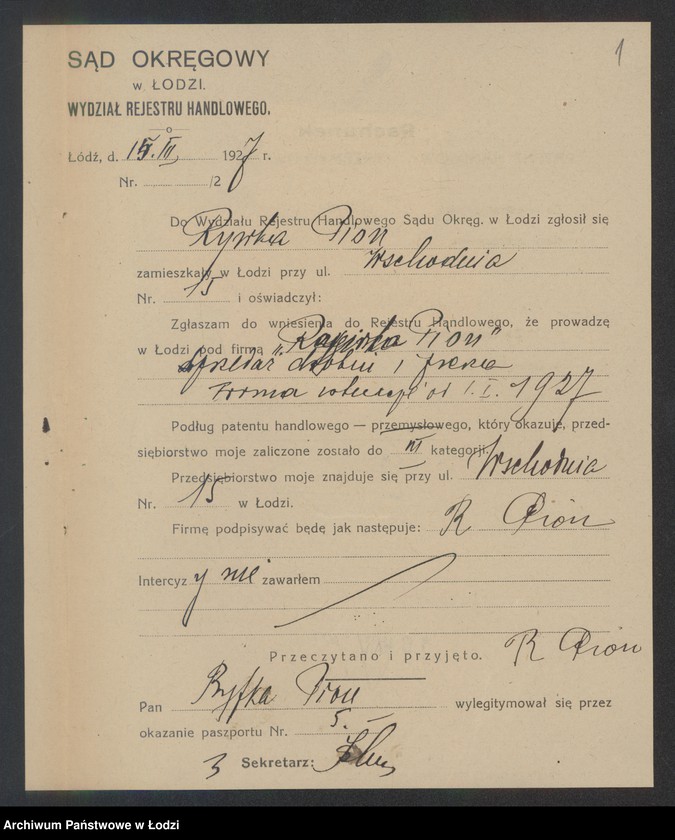 1
SĄD OKRĘGOWY
w ŁODZI.
WYDZIAŁ REJESTRU HANDLOWEGO.
Łódź, d. 15. III 1927 r.
Nr. /2
Do Wydziału Rejestru Handlowego Sądu Okręg. w Łodzi zgłosił się
Rywka Pion
zamieszkały w Łodzi przy ul. Wschodnia
Nr. 15 i oświadczył:
Zgłaszam do wniesienia do Rejestru Handlowego, że prowadzę
w Łodzi pod firmą "Pion"
i
Firma istnieje od 1. I. 1927
Podług patentu handlowego — przemysłowego, który okazuję, przed-
siębiorstwo moje zaliczone zostało do III kategorji.
Przedsiębiorstwo moje znajduje się przy ul. Wschodnia
Nr. 15 w Łodzi.
Firmę podpisywać będę jak następuje: R Pion
Intercyzy nie zawarłem
Przeczytano i przyjęto. R Pion
Pan Ryfka Pion wylegitymował się przez
okazanie paszportu Nr. 5. —
3 Sekretarz:
Archiwum Państwowe w Łodzi